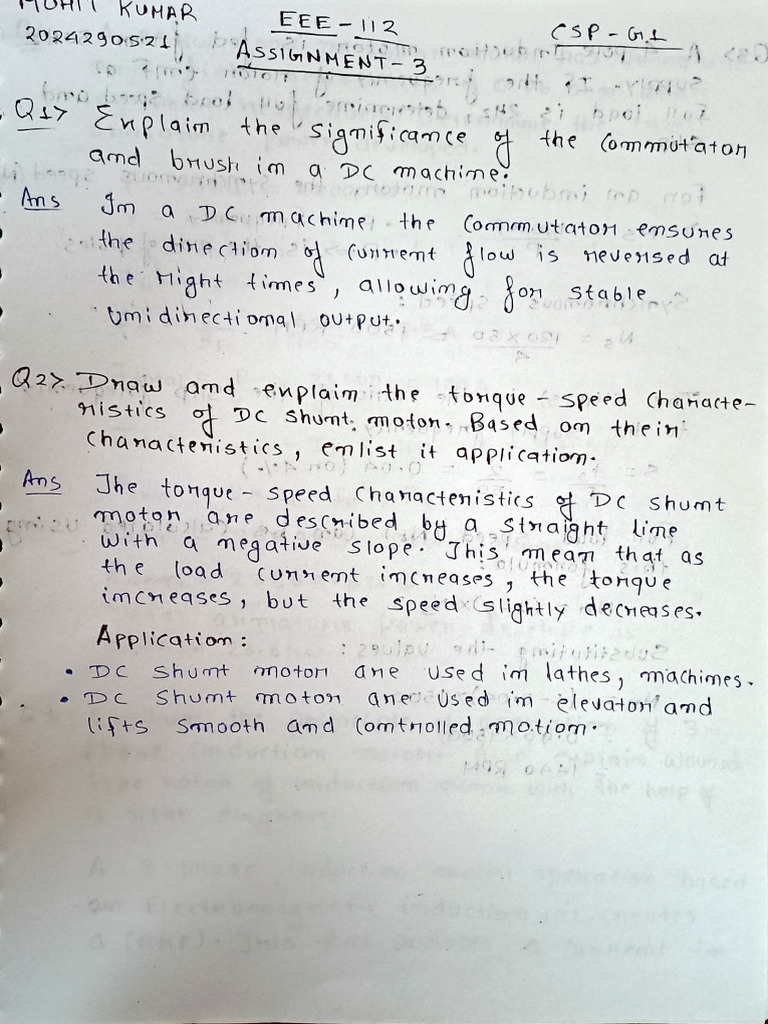 MOHIT KUMAR
EEE - 112
CSP - G1
2024290521
ASSIGNMENT - 3
Q1> Explain the significance of the commutator
and brush in a DC machine.
Ans In a DC machine, the commutator ensures
the direction of current flow is reversed at
the right times, allowing for stable
unidirectional output.
Q2> Draw and explain the torque - speed characte-
ristics of DC shunt motor. Based on their
characteristics, enlist it application.
Ans The torque - speed characteristics of DC shunt
motor are described by a straight line
with a negative slope. This mean that as
the load current increases, the torque
increases, but the speed slightly decreases.
Application:
• DC shunt motor are used in lathes, machines.
• DC shunt motor are used in elevator and
lifts smooth and controlled motion.